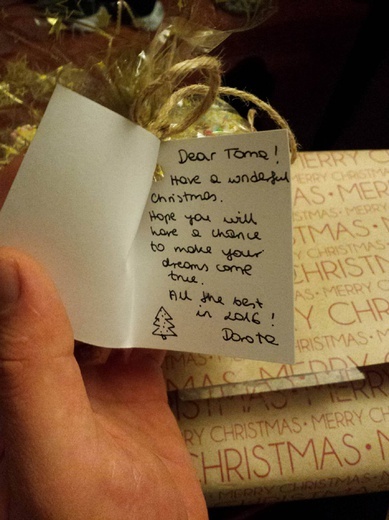 Dear Toma!
Have a wonderful
Christmas.
Hope you will
have a chance
to make your
dreams come
true.
All the best
in 2016!
Dorota
MERRY CHRISTMAS
CHRISTMAS • MERRY
CHRISTMAS
MERRY CHRISTMAS • MERRY CHRISTMAS
CHRISTMAS •